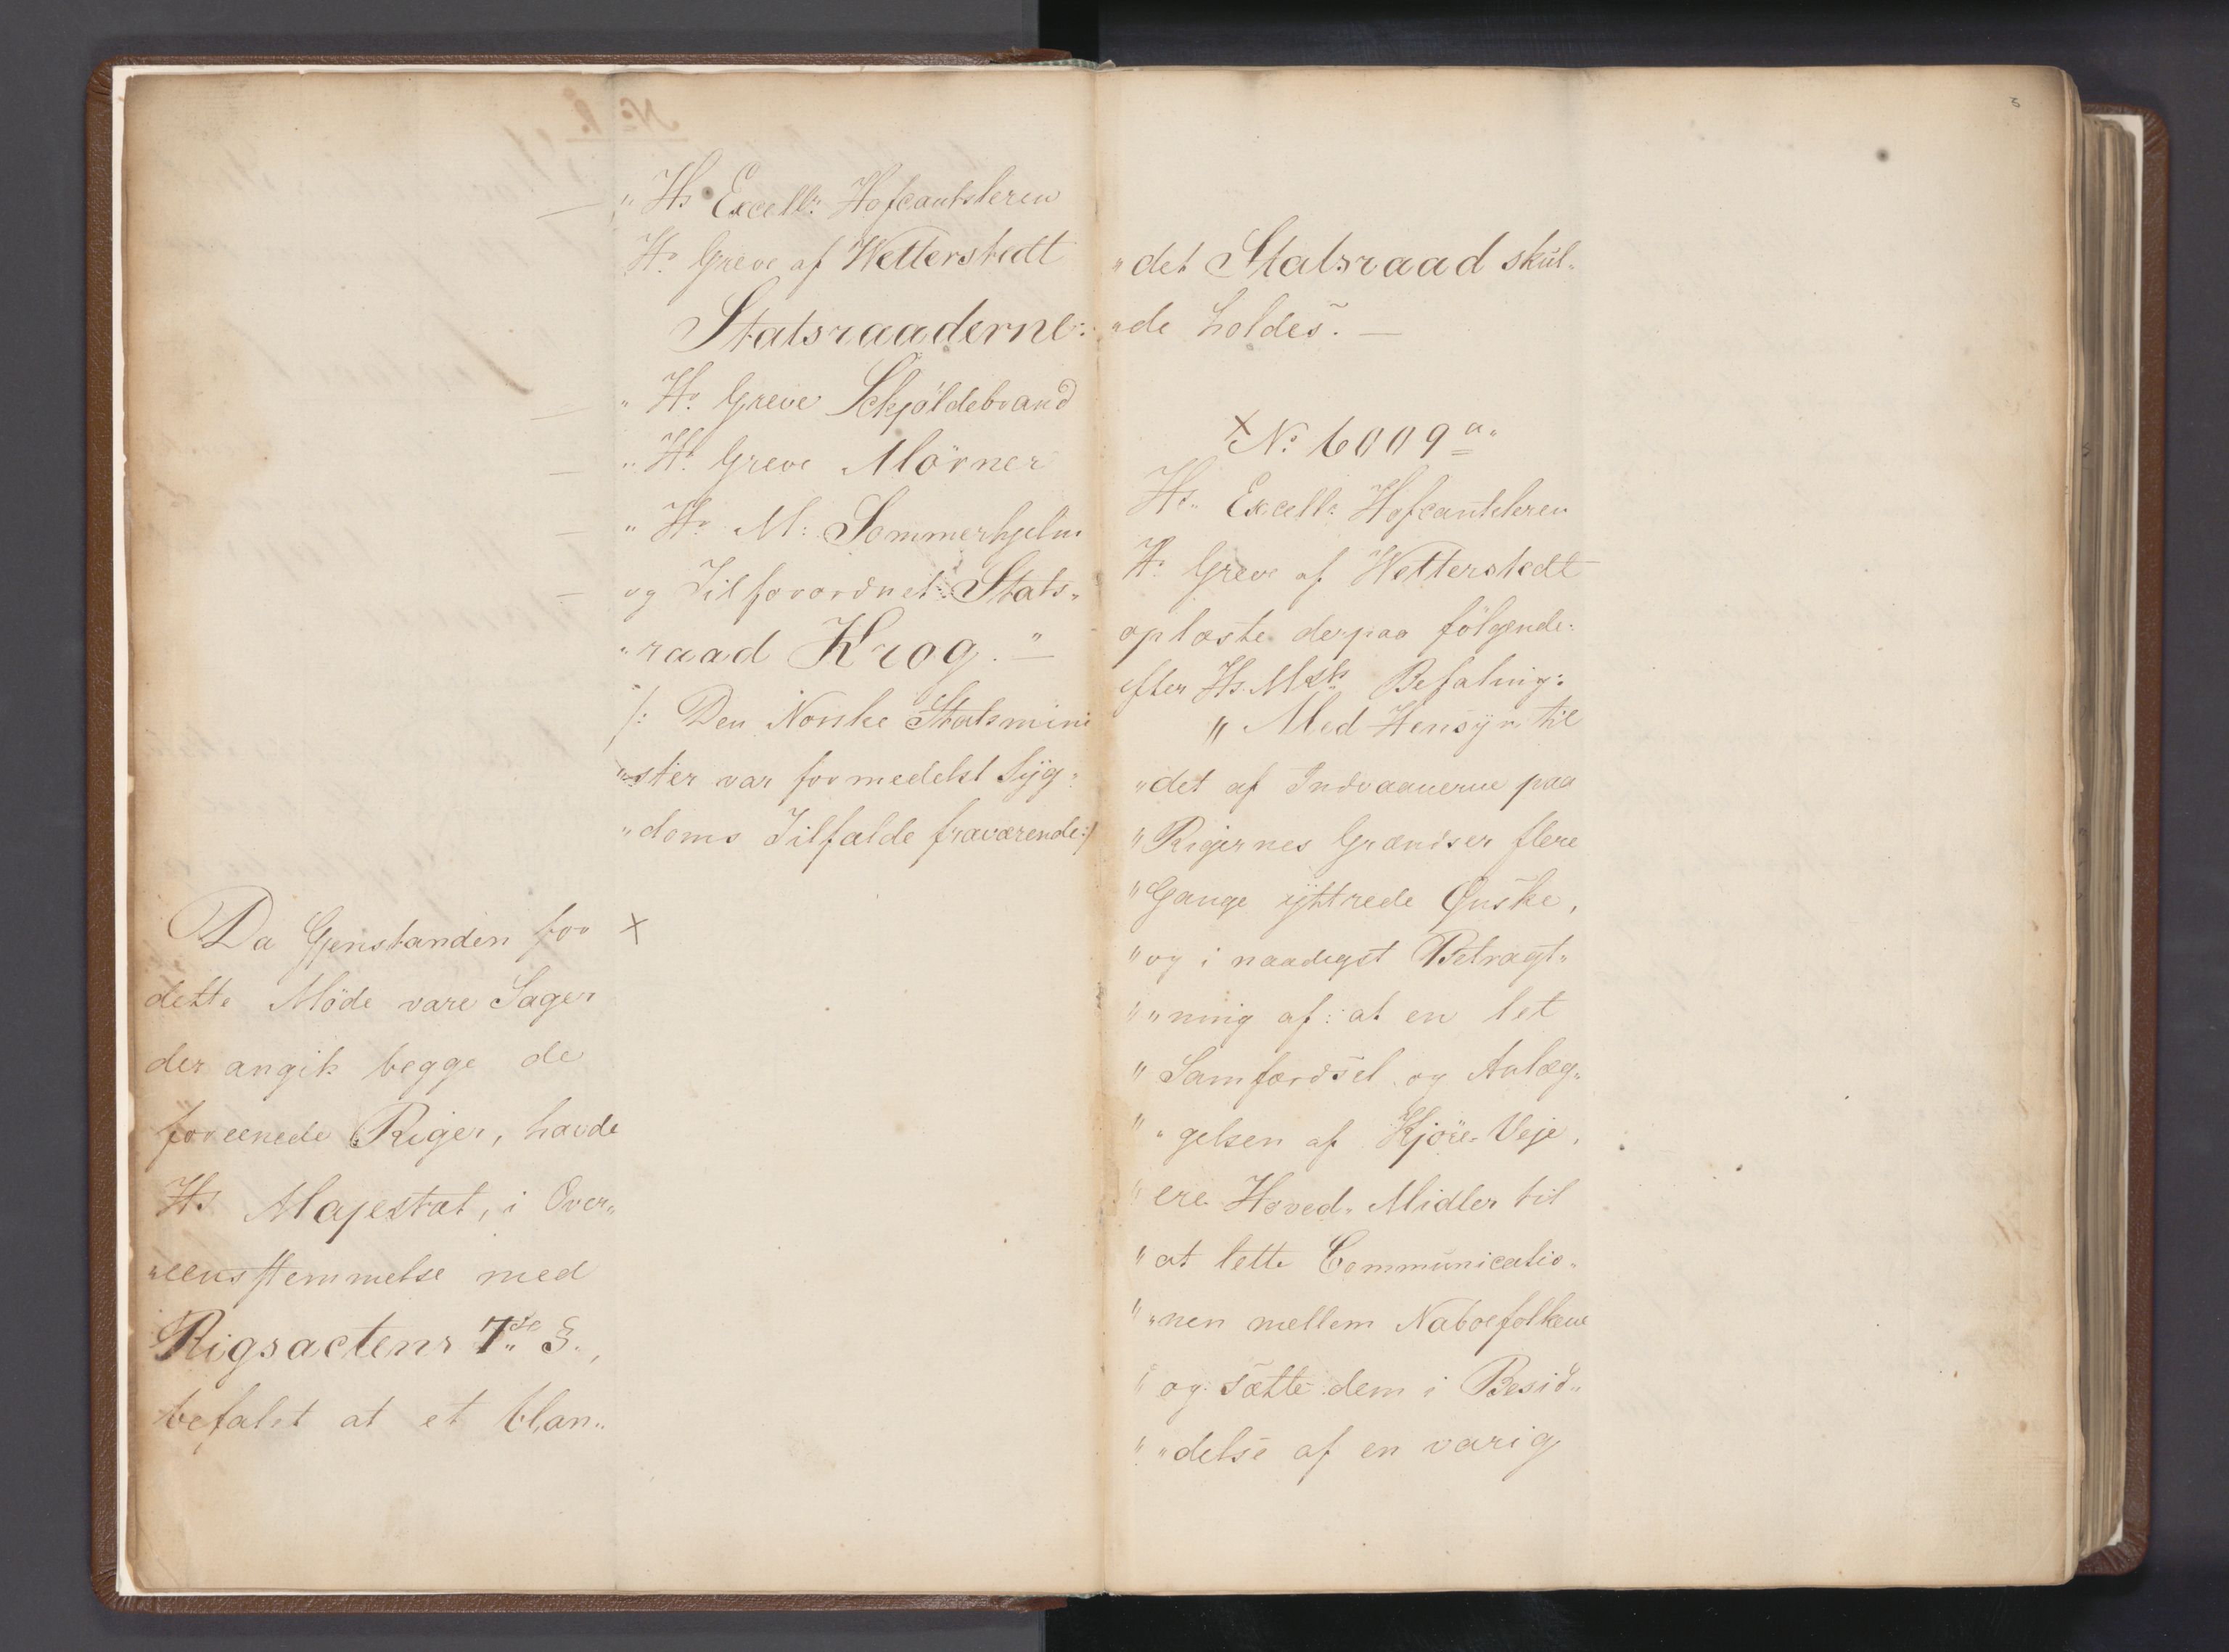 "Hs Excell: Hofcantsleren
Hr. Greve af Wetterstedt
Statsraaderne:
" Hr. Greve Schjöldebrand
" Hr. Greve Mörner
" Hr. M: Sommerhjelm
og Tilforordnet Stats„
„raad Krog. "—
/: Den Norske Statsmini
„ster var formedelst Syg„
„doms Tilfælde fraværende:/
Da Gjenstanden for ×
dette Möde vare Sager
der angik begge de
foreenede Riger, havde
Hs Majestæt, i Over„
„eensstemmelse med
Rigsactens 7de §.,
befalet at et blan„
5
„det Statsraad skul„
„de holdes. —
× No. 6009 a„
Hs. Excell: Hofcantsleren
Hr. Greve af Wetterstedt
oplæste derpaa fölgende:
efter Hs. Msts Befaling:
„ Med Hensyn til
„det af Indvaanerne paa
„Rigernes Grændser flere
„Gange yttrede Ønske,
„og i naadigst Betragt„
„„ning af: at en let
„Samfærdsel og Anlæg„
„„gelsen af Kjöre-Veje,
„ere Hoved-Midler til
„at lette Communicatio„
„„nen mellem Naboefolkene
„og sætte dem i Besid„
„„delse af en varig